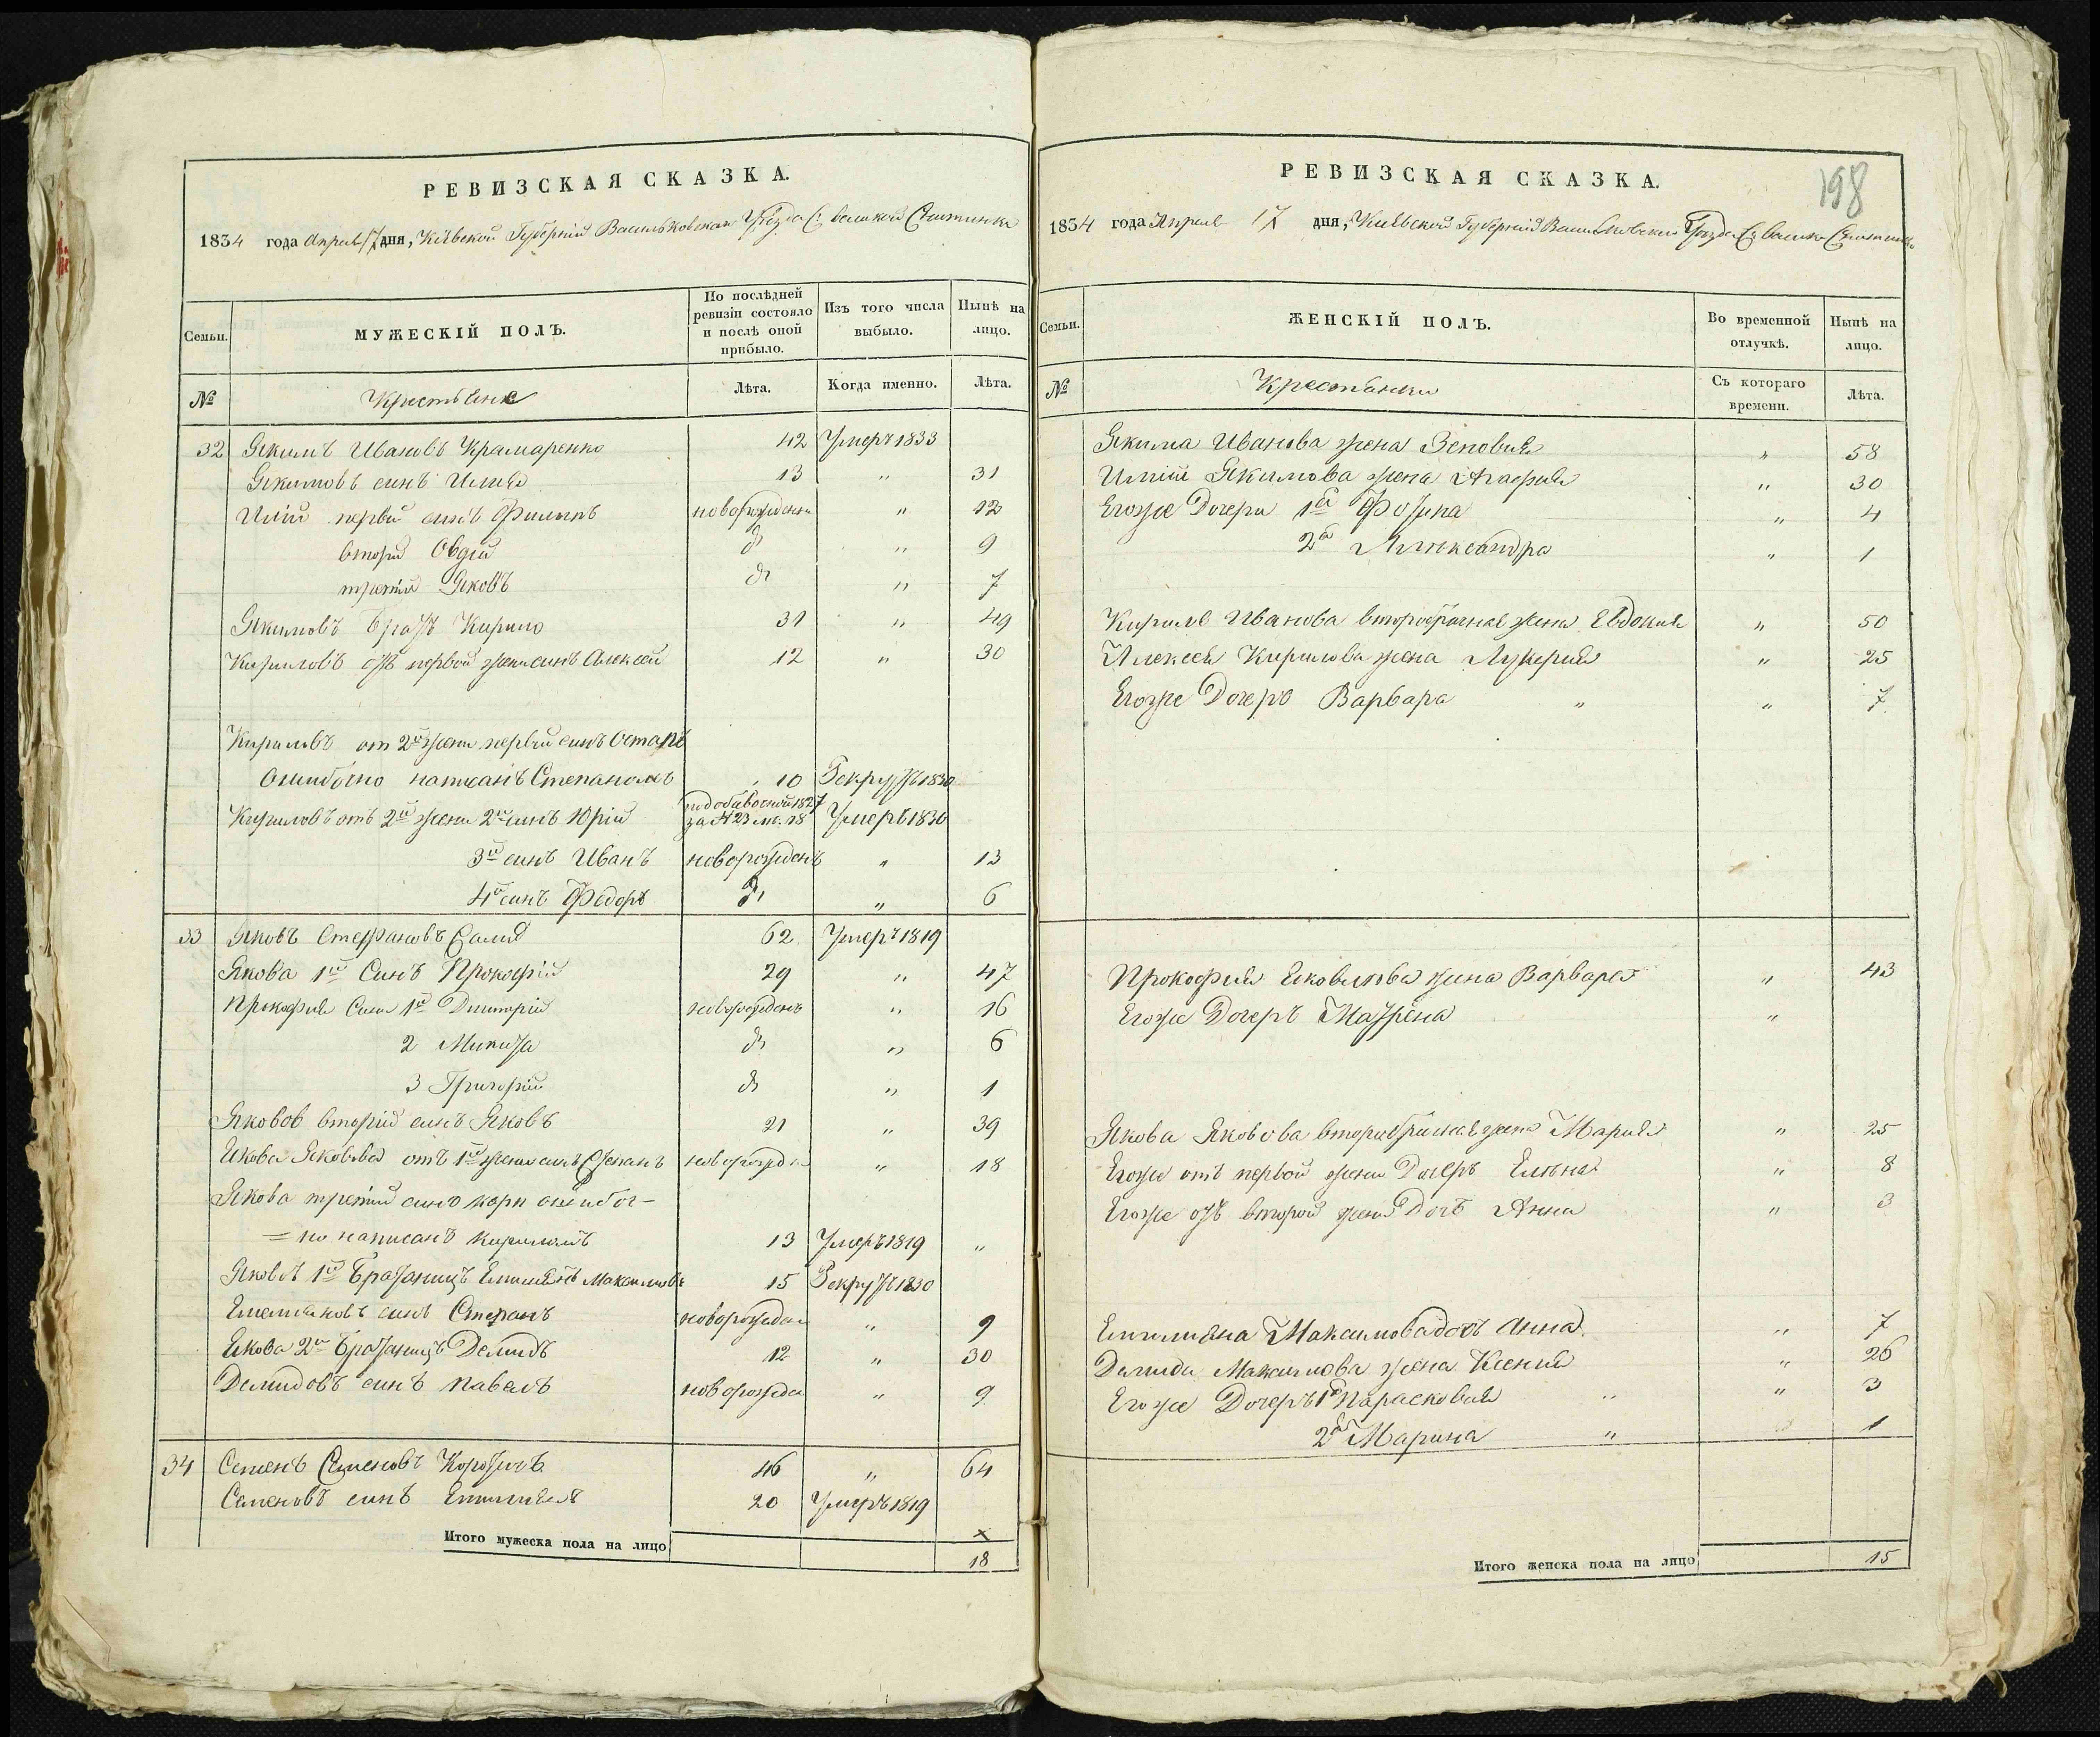 РЕВИЗСКАЯ СКАЗКА.
1834 года Априля 17 дня, Кіевской Губерніи Васильковскаго Уѣзда С:
Семьи.
МУЖЕСКІЙ ПОЛЪ.
По послѣдней ревизіи состояло и послѣ оной прибыло.
Изъ того числа выбыло.
Нынѣ на лицо.
№
Крестьяне
Лѣта.
Когда именно.
Лѣта.
32 Якимъ Ивановъ Крамаренко 42 Умеръ 1833
Якимовъ синъ Илия 13 " 31
Иліи первій синъ Филипъ новорожденъ " 12
вторій Овдій др " 9
третій Яковъ др " 7
Якимовъ братъ Кирило 31 " 49
Кириловъ отъ первой жени синъ Алексей 12 " 30
Кириловъ от 2й жени первій синъ Остапъ
Ошибочно написанъ Степаномъ 10 Рекрутъ 1830
Кириловъ отъ 2й жени 2й синъ Юрій 1827 за № 23 18 Умеръ 1830
3й синъ Иванъ новорожденъ " 13
4й синъ Федоръ др " 6
33 Яковъ Стефановъ 62 Умеръ 1819
Якова 1й Синъ Прокофій 29 " 47
Прокофия Синъ 1й Димитрій новорожденъ " 16
2 Микита др " 6
3 Григорій др " 1
Яковов вторій синъ Яковъ 21 " 39
Якова Яковова отъ 1й жени синъ Степанъ новорожден " 18
Якова третій синъ ошибоч-
=но написанъ Кириломъ 13 Умеръ 1819 "
Якова 1й Братаницъ Емилиянъ Максимовъ 15 Рекрутъ 1830
Емелияновъ синъ Стефанъ новорожден " 9
Якова 2й Братаницъ Демидъ 12 " 30
Демидовъ синъ Павелъ новорожден " 9
34 Семенъ Семеновъ 46 " 64
Семеновъ синъ Емилиянъ 20 Умеръ 1819
Итого мужеска пола на лицо 18
198
РЕВИЗСКАЯ СКАЗКА.
1834 года Априля 17 дня, Киевской Губерніи Васильковскаго Уезда С:
Семьи.
ЖЕНСКІЙ ПОЛЪ.
Во временной отлучкѣ.
Нынѣ на лицо.
№
Крестьянки
Съ котораго времени.
Лѣта.
Якима Иванова жена Зеновия " 58
Иліи Якимова жена Агафия " 30
Егоже Дочери 1я Фотина " 4
2я Александра " 1
Кирила Иванова второбрачная жена Евдокия " 50
Алексея Кирилова жена Лукерия " 25
Егоже Дочеръ Варвара " " 7
Прокофия Яковлева жена Варвара " 43
Егоже Дочеръ Матрена "
Якова Яковова второбрачная жена Мария " 25
Егоже отъ первой жени Дочеръ Елена " 8
Егоже отъ второй жени Дочъ Анна " 3
Емилияна Максимова дочъ Анна " 7
Демида Максимова жена Ксения " 26
Егоже Дочеръ 1я Парасковия " " 3
2я Марина " 1
Итого женска пола на лицо 15